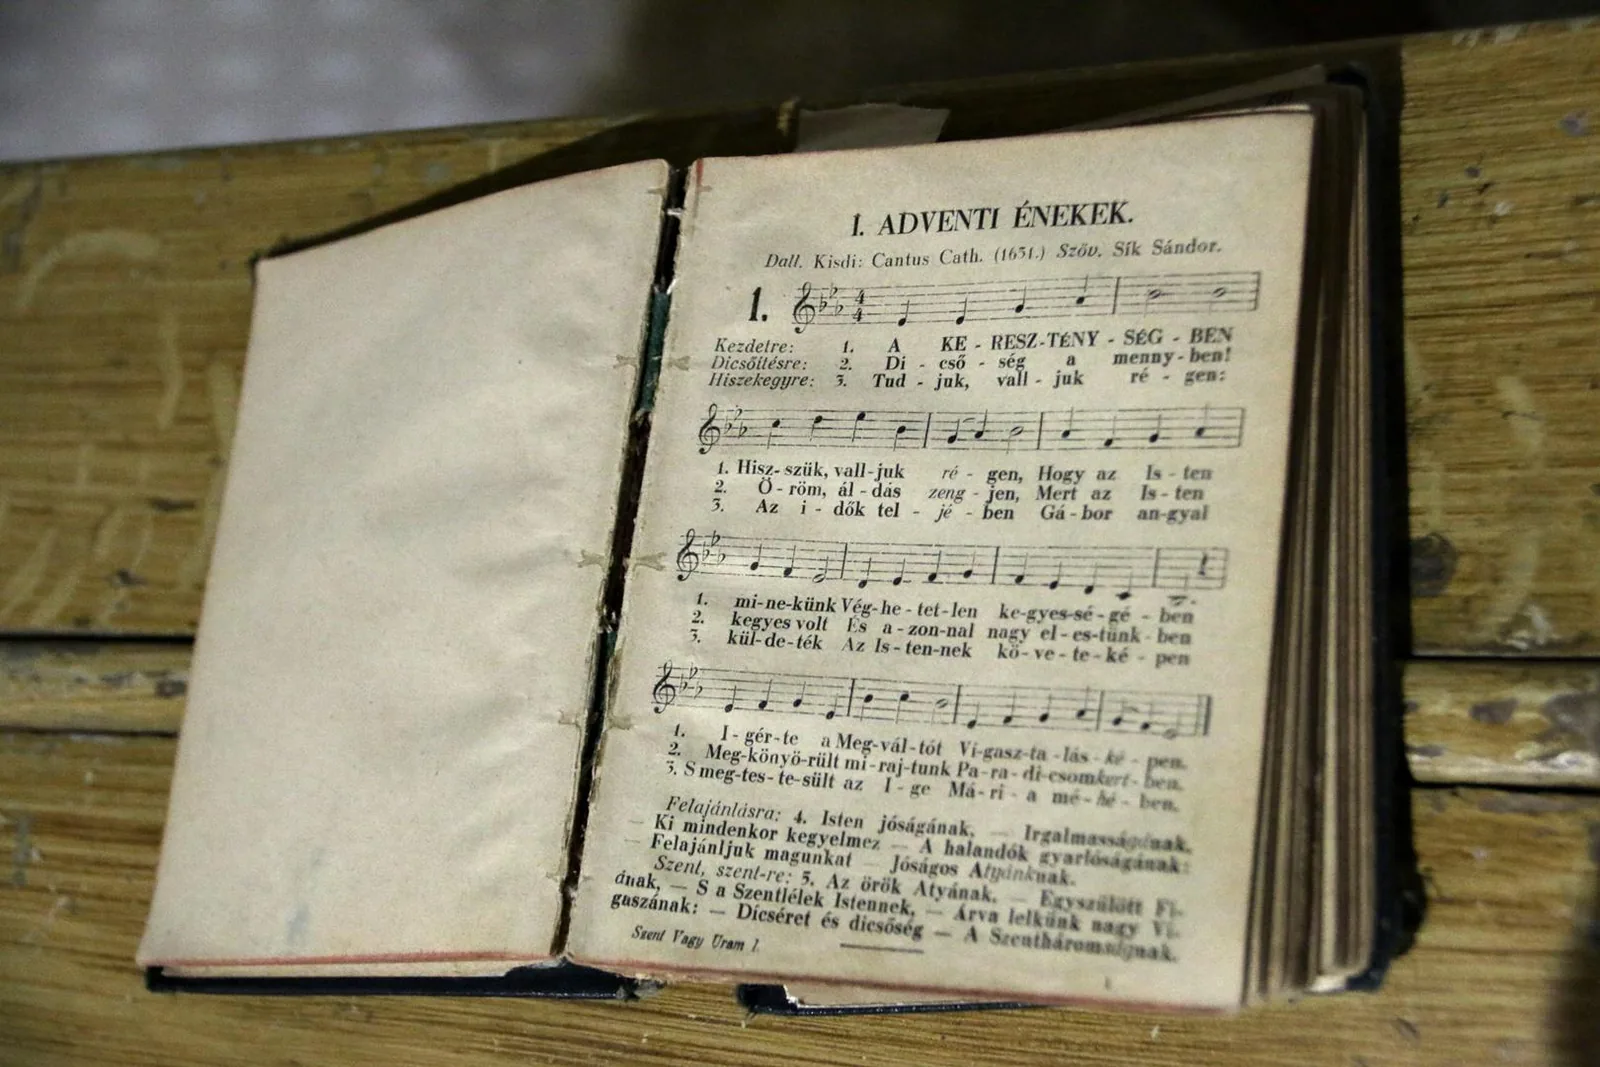 I. ADVENTI ÉNEKEK.
Dall. Kisdi: Cantus Cath. (1651.) Szöv. Sík Sándor.
1.
4
4
Kezdetre: 1. A KE - RESZ-TÉNY - SÉG - BEN
Dicsőítésre: 2. Di - cső - ség a menny-ben!
Hiszekegyre: 3. Tud - juk, vall - juk ré - gen:
1. Hisz-szük, vall-juk ré - gen, Hogy az Is - ten
2. Ö - röm, ál - dás zeng - jen, Mert az Is - ten
3. Az i - dők tel - jé - ben Gá - bor an-gyal
1. mi-ne-künk Vég-he - tet - len ke-gyes-sé - gé - ben
2. kegyes volt És a - zon-nal nagy el - es-tünk - ben
3. kül-de-ték Az Is-ten-nek kö - ve - te - ké - pen
1. I - gér-te a Meg-vál-tót Vi-gasz-ta -lás - ké - pen.
2. Meg-könyö-rült mi-raj-tunk Pa-ra-di-csomkert-ben.
3. S meg-tes-te-sült az I - ge Má-ri - a mé-hé - ben.
Felajánlásra: 4. Isten jóságának, — Irgalmasságának,
— Ki mindenkor kegyelmez — A halandók gyarlóságának:
— Felajánljuk magunkat — Jóságos Atyánknak.
Szent, szent-re: 5. Az örök Atyának, — Egyszülött Fi-
ának, — S a Szentlélek Istennek, — Árva lelkünk nagy Vi-
gaszának: — Dicséret és dicsőség — A Szentháromságnak.
Szent Vagy Uram 1.
1